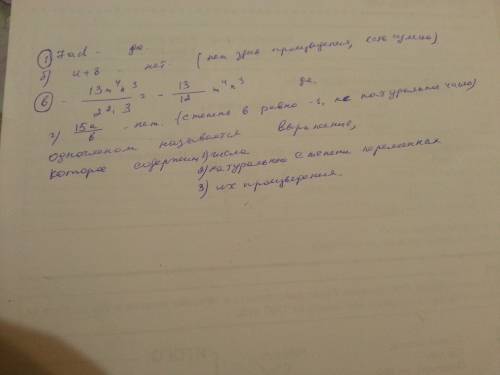 1) 7ad - да.
б) 4+8 - нет. (нет здесь произведения, есть сумма)
в) - 13m⁴n³ / 2²·3 = - 13/12 m⁴n³ да.
г) 15a/в - нет. (степень в равно -1, не натуральное число)
одночленом называется выражение,
которое содержит 1) числа
2) натуральные степени переменных
3) их произведения.